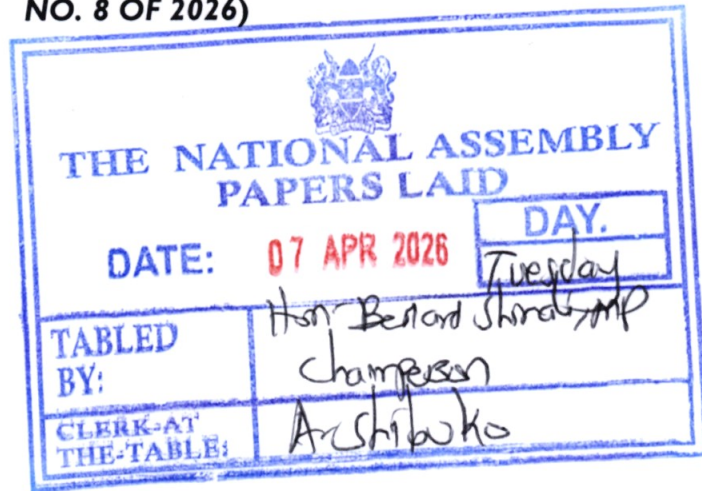 NO. 8 OF 2026)
THE NATIONAL ASSEMBLY
PAPERS LAID
DATE: 07 APR 2026
DAY.
Tuesday
TABLED
BY:
Hon Benard Shinali, MP
Chairperson
CLERK-AT
THE-TABLE:
A. Shibuko